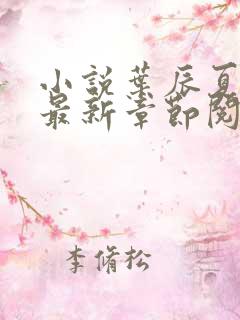 小說葉辰夏
最新章節閱
李脩松